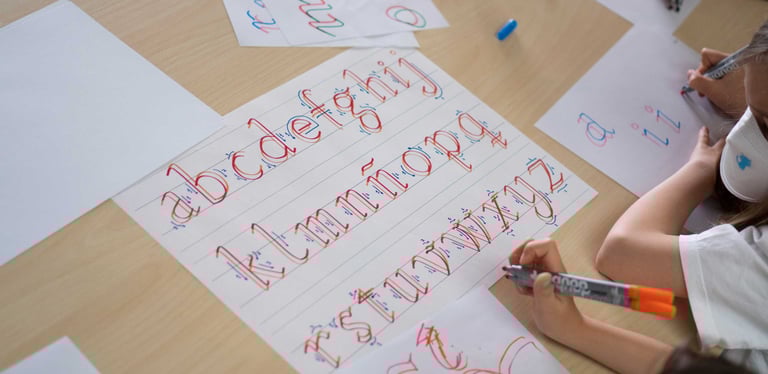 abcdefghij
klmnñopq
rstuvwxyz
a ii